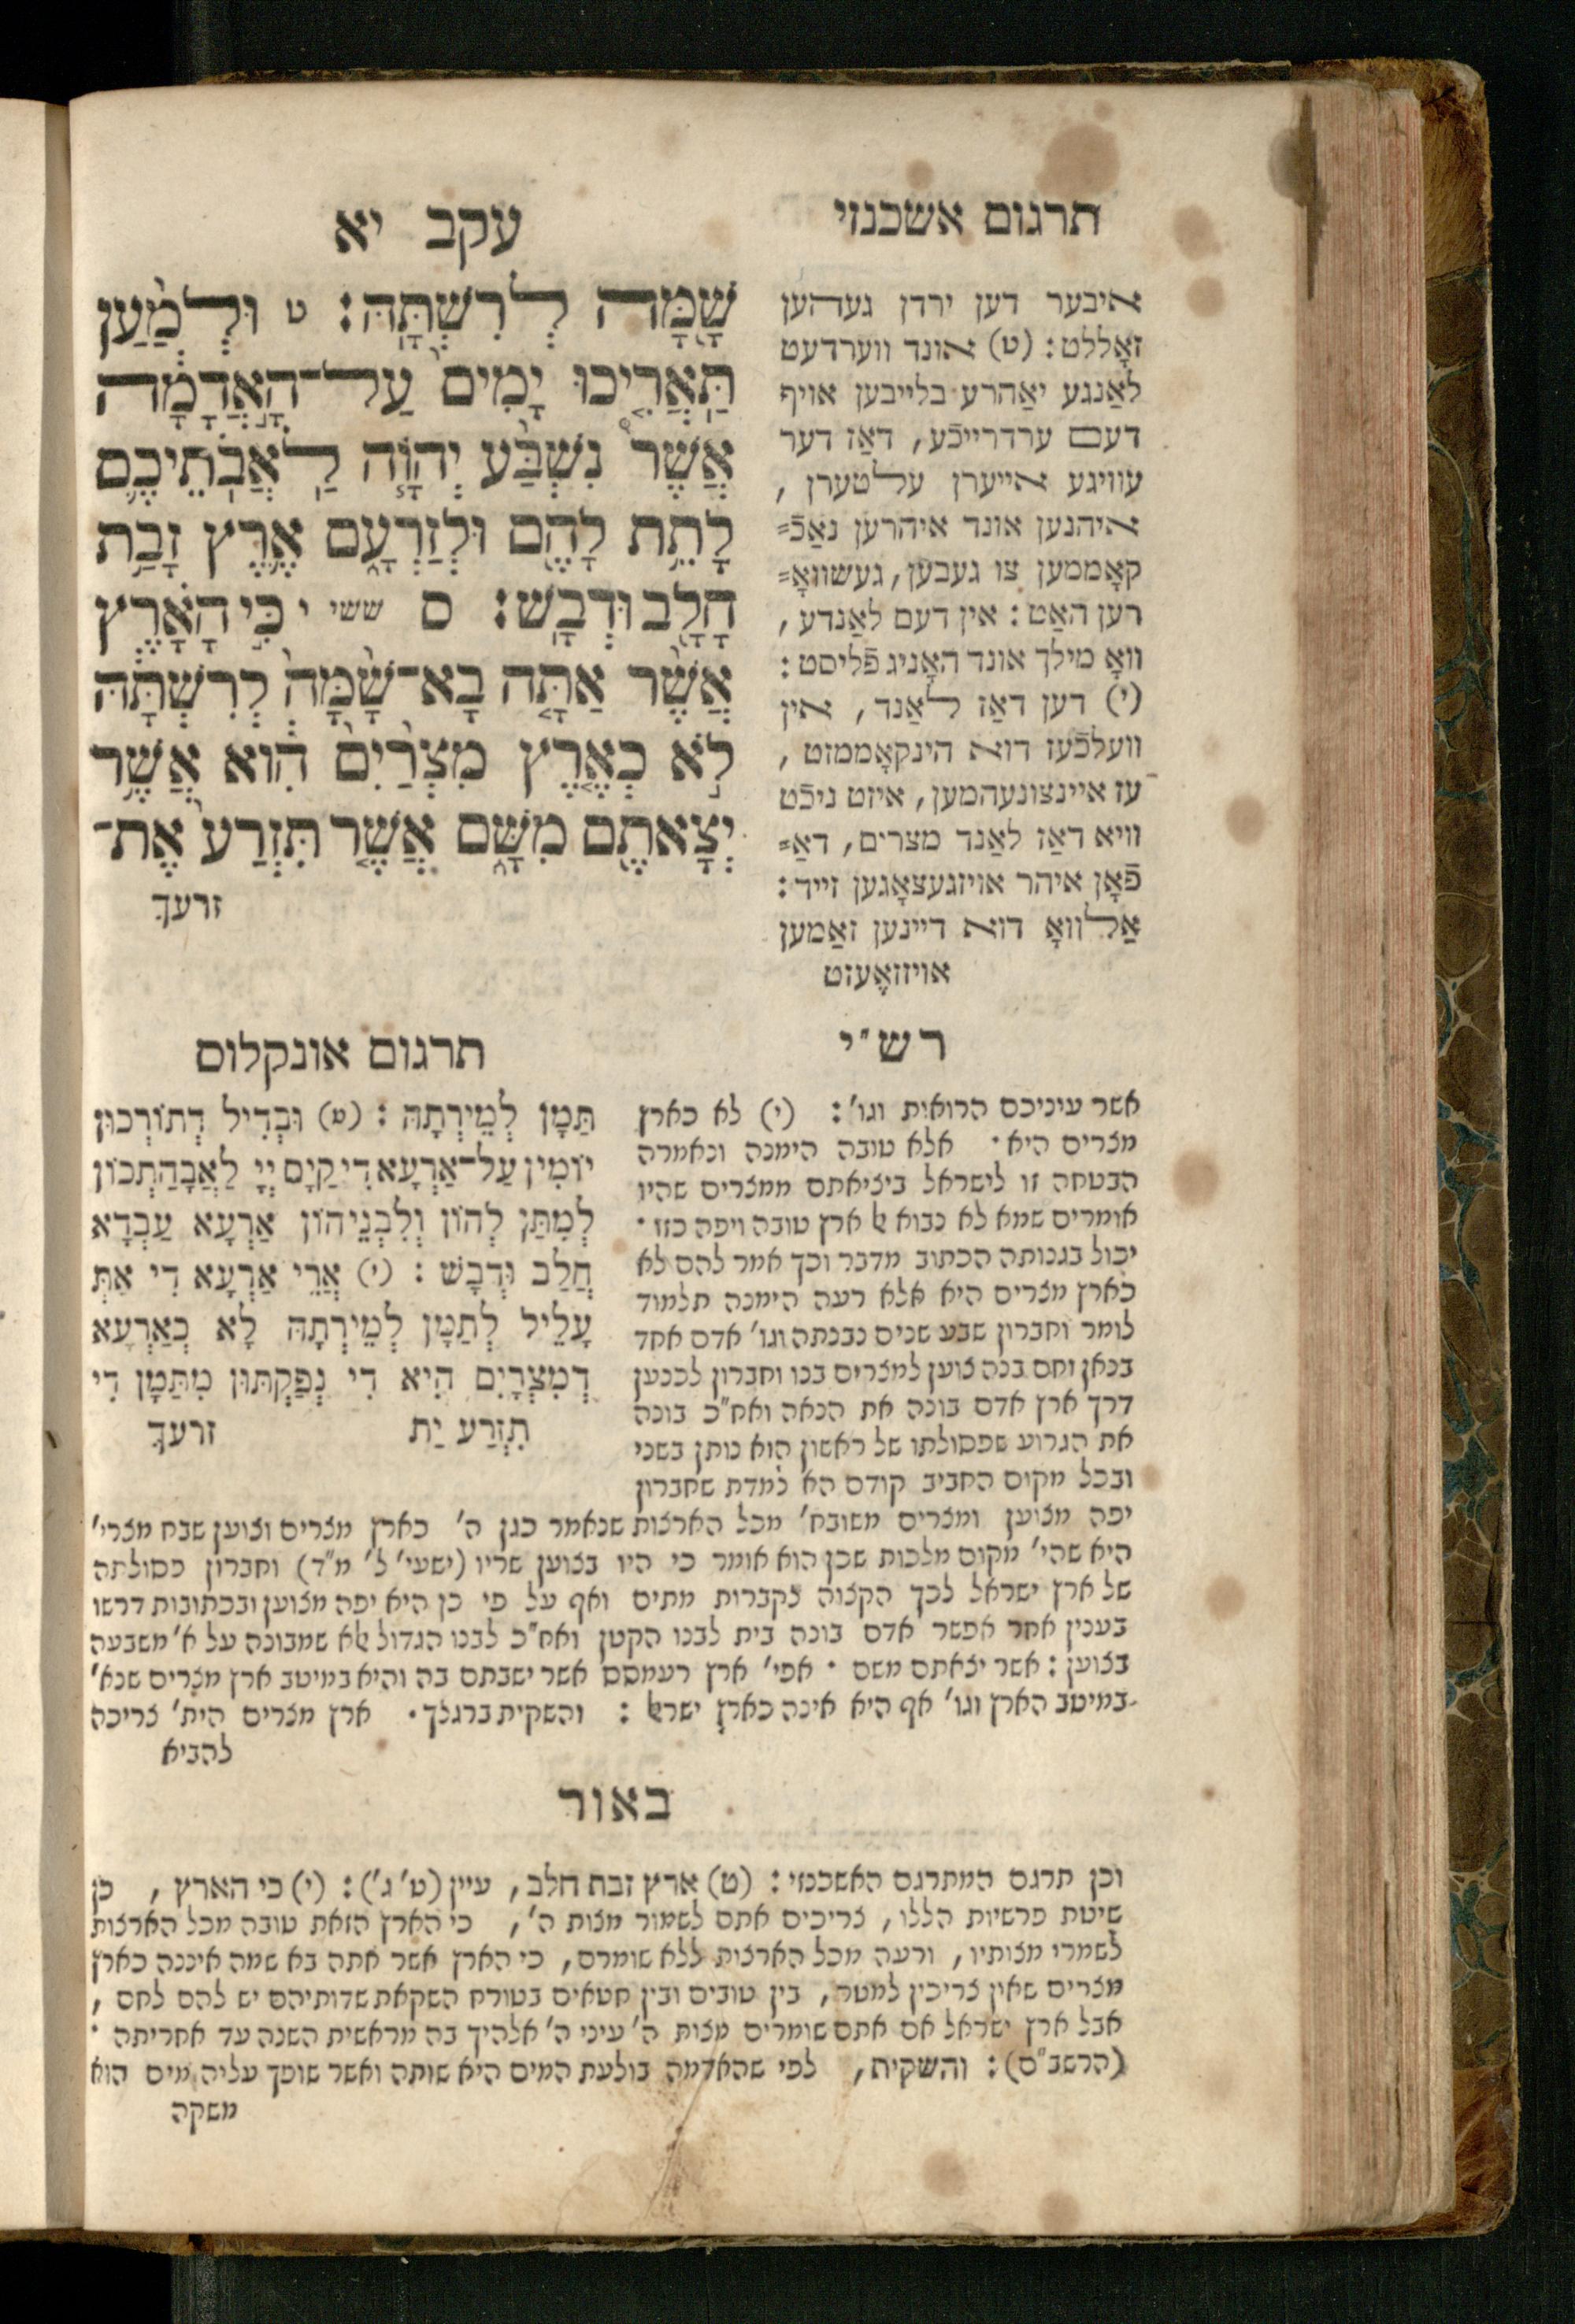 תרגום אשכנזי
עקב יא
שָׁ֖מָּה לְרִשְׁתָּֽהּ׃ ט וּלְמַ֨עַן
תַּאֲרִ֤יכוּ יָמִים֙ עַל־הָ֣אֲדָמָ֔ה
אֲשֶׁר֩ נִשְׁבַּ֨ע יְהוָ֧ה לַאֲבֹֽתֵיכֶ֛ם
לָתֵ֥ת לָהֶ֖ם וּלְזַרְעָ֑ם אֶ֛רֶץ זָבַ֥ת
חָלָ֖ב וּדְבָֽשׁ׃ ס ששי י כִּ֣י הָאָ֗רֶץ
אֲשֶׁ֨ר אַתָּ֤ה בָא־שָׁ֙מָּה֙ לְרִשְׁתָּ֔הּ
לֹ֣א כְאֶ֤רֶץ מִצְרַ֙יִם֙ הִ֔וא אֲשֶׁ֥ר
יְצָאתֶ֖ם מִשָּׁ֑ם אֲשֶׁ֤ר תִּזְרַע֙ אֶֽת־
זרעך
איבער דען ירדן געהען
זאָללט: (ט) אונד ווערדעט
לאַנגע יאַהרע בלייבען אויף
דעם ערדרייכֿע, דאַז דער
עוויגע אייערן עלטערן,
איהנען אונד איהרען נאַכֿ=
קאָממען צו געבען, געשוואָ=
רען האַט: אין דעם לאַנדע,
וואָ מילך אונד האָניג פֿליסט:
(י) דען דאַז לאַנד, אין
וועלכֿעז דוא הינקאָממזט,
עז איינצונעהמען, איזט ניכֿט
וויא דאַז לאַנד מצרים, דאַ=
פֿאָן איהר אויזגעצאָגען זייד:
אַללוואָ דוא דיינען זאַמען
אויזזאָעזט
רש"י
אשר עיניכם הרואות וגו': (י) לא כארץ
מצרים היא· אלא טובה הימנה ונאמרה
הבטחה זו לישראל ביציאתם ממצרים שהיו
אומרים שמא לא נבוא אל ארץ טובה ויפה כזו·
יכול בגנותה הכתוב מדבר וכך אמר להם לא
כארץ מצרים היא אלא רעה הימנה תלמוד
לומר וחברון שבע שנים נבנתה וגו' אדם אחד
בנאן וחם בנה צוען למצרים בנו וחברון לכנען
דרך ארץ אדם בונה את הנאה ואח"כ בונה
את הגרוע שפסולתו של ראשון הוא נותן בשני
ובכל מקום החביב קודם הא למדת שחברון
יפה מצוען ומצרים משובח' מכל הארצות שנאמר כגן ה' כארץ מצרים וצוען שבח מצרי'
היא שהי' מקום מלכות שכן הוא אומר כי היו בצוען שריו (ישעי' ל' מ"ד) וחברון פסולתה
של ארץ ישראל לכך הקצוה לקברות מתים ואף על פי כן היא יפה מצוען ובכתובות דרשו
בענין אחר אפשר אדם בונה בית לבנו הקטן ואח"כ לבנו הגדול אלא שמבונה על א' משבעה
בצוען: אשר יצאתם משם· אפי' ארץ רעמסס אשר ישבתם בה והיא במיטב ארץ מצרים שנא'
במיטב הארץ וגו' אף היא אינה כארץ ישראל: והשקית ברגלך· ארץ מצרים הית' צריכה
להביא
תרגום אונקלוס
תַּמָּן לְמֵירְתָהּ: (ט) וּבְדִיל דְּתוֹרְכוּן
יוֹמִין עַל־אַרְעָא דִי קַיָּם יְיָ לַאֲבָהַתְכוֹן
לְמִתַּן לְהוֹן וְלִבְנֵיהוֹן אַרְעָא עַבְדָא
חֲלַב וּדְבָשׁ: (י) אֲרֵי אַרְעָא דִי אַתְּ
עָלֵיל לְתַמָּן לְמֵירְתָהּ לָא כְאַרְעָא
דְמִצְרַיִם הִיא דִי נְפַקְתּוּן מִתַּמָּן דִי
תִזְרַע יַת זרעך
באור
וכן תרגם המתרגם האשכנזי: (ט) ארץ זבת חלב, עיין (ט' ג'): (י) כי הארץ, כן
שיטת פרשיות הללו, צריכים אתם לשמור מצות ה', כי הארץ הזאת טובה מכל הארצות
לשמרי מצותיו, ורעה מכל הארצות ללא שומרם, כי הארץ אשר אתה בא שמה איננה כארץ
מצרים שאין צריכין למטר, בין טובים ובין חטאים בטורח השקאת שדותיהם יש להם לחם,
אבל ארץ ישראל אם אתם שומרים מצות ה' עיני ה' אלהיך בה מראשית השנה עד אחריתה·
(הרשב"ם): והשקית, לפי שהאדמה בולעת המים היא שותה ואשר שופך עליה מים הוא
משקה